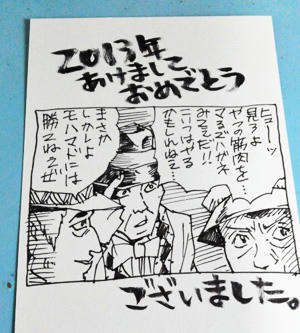 2013年
あけまして
おめでとう
ヒューッ
見ろよ
やつの筋肉を…
まるでハガネ
みてえだ!!
こいつはやる
かもしんねえ…
まさか
しかしよ
モハメドには
勝てねえぜ
ございました。